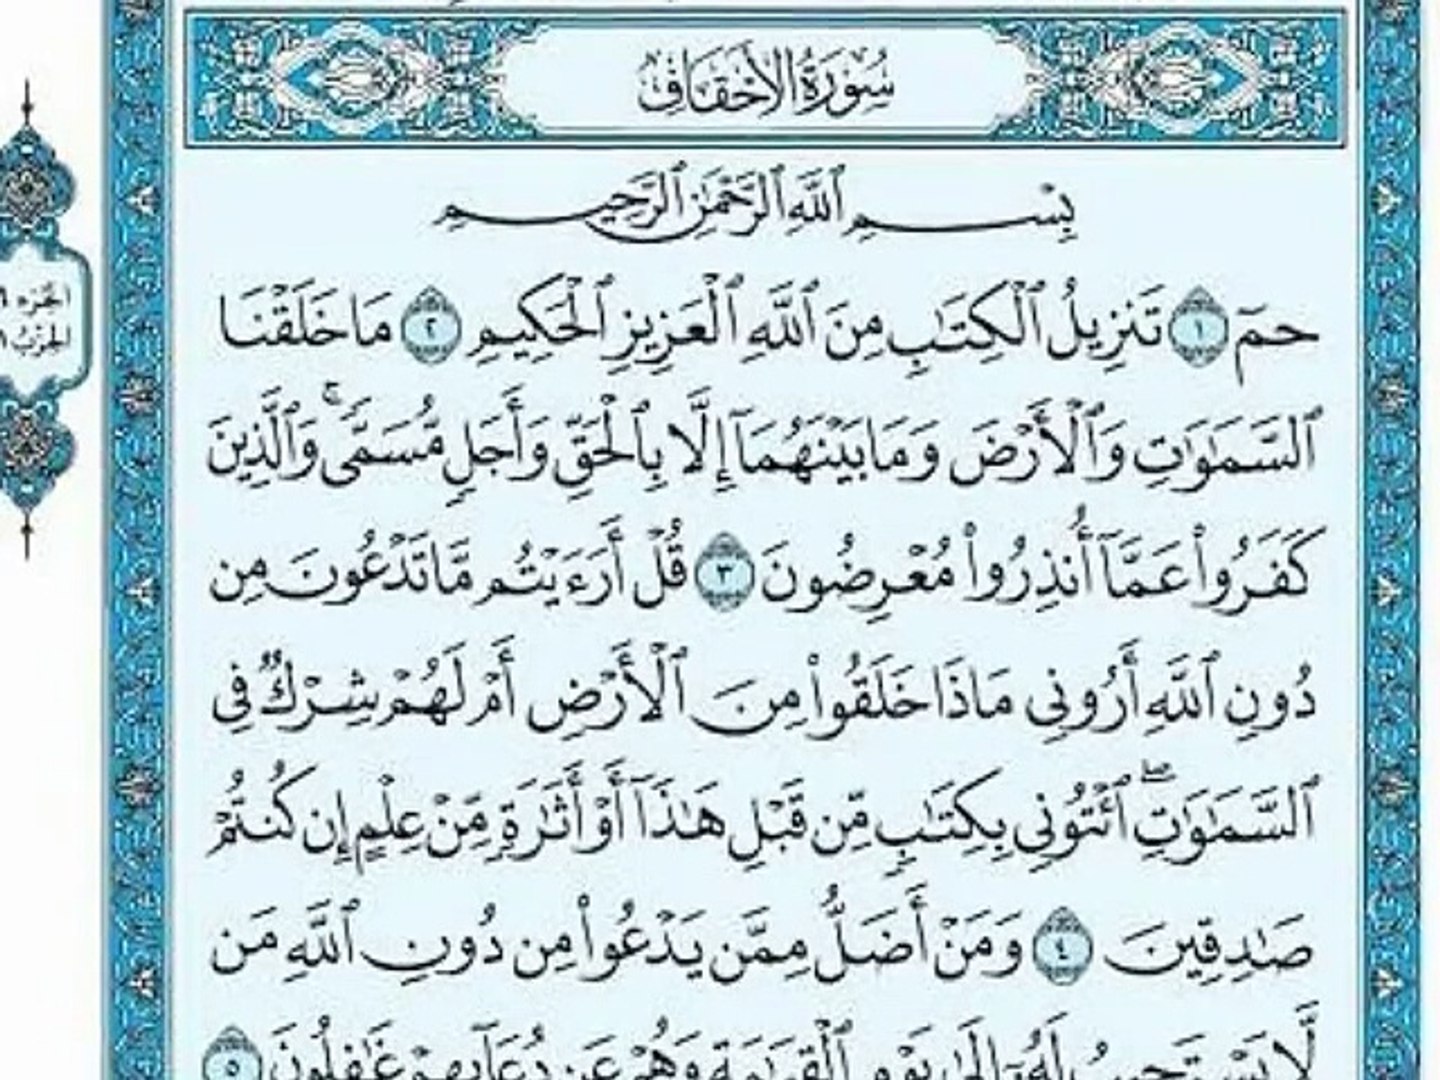 سُورَةُ الأَحْقَافِ
بِسْمِ ٱللَّهِ ٱلرَّحْمَٰنِ ٱلرَّحِيمِ
حمٓ ١ تَنزِيلُ ٱلْكِتَٰبِ مِنَ ٱللَّهِ ٱلْعَزِيزِ ٱلْحَكِيمِ ٢ مَا خَلَقْنَا
ٱلسَّمَٰوَٰتِ وَٱلْأَرْضَ وَمَا بَيْنَهُمَآ إِلَّا بِٱلْحَقِّ وَأَجَلٍ مُّسَمًّى ۚ وَٱلَّذِينَ
كَفَرُوا۟ عَمَّآ أُنذِرُوا۟ مُعْرِضُونَ ٣ قُلْ أَرَءَيْتُم مَّا تَدْعُونَ مِن
دُونِ ٱللَّهِ أَرُونِى مَاذَا خَلَقُوا۟ مِنَ ٱلْأَرْضِ أَمْ لَهُمْ شِرْكٌ فِى
ٱلسَّمَٰوَٰتِ ۖ ٱئْتُونِى بِكِتَٰبٍ مِّن قَبْلِ هَٰذَآ أَوْ أَثَٰرَةٍ مِّنْ عِلْمٍ إِن كُنتُمْ
صَٰدِقِينَ ٤ وَمَنْ أَضَلُّ مِمَّن يَدْعُوا۟ مِن دُونِ ٱللَّهِ مَن
لَّا يَسْتَجِيبُ لَهُۥٓ إِلَىٰ يَوْمِ ٱلْقِيَٰمَةِ وَهُمْ عَن دُعَآئِهِمْ غَٰفِلُونَ ٥
الجزء
الحزب